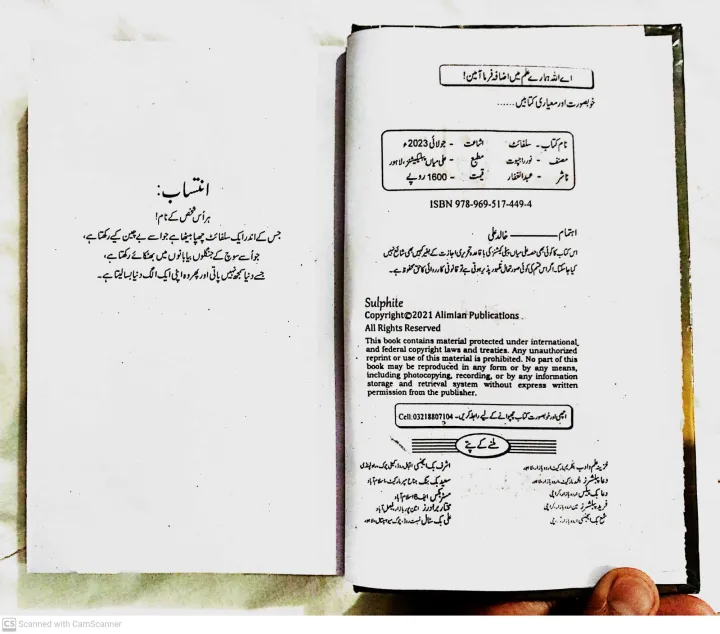 اے اللہ ہمارے علم میں اضافہ فرما آمین!
خوبصورت اور معیاری کتابیں......
نام کتاب - سلفائٹ اشاعت - جولائی 2023ء
مصنف - نور راجپوت مطبع - علی میاں پبلیکیشنز، لاہور
ناشر - عبدالغفار قیمت - 1600 روپے
ISBN 978-969-517-449-4
اہتمام ——— خالد علی
اس کتاب کا کوئی بھی حصہ علی میاں پبلی کیشنز کی باقاعدہ تحریری اجازت کے بغیر کہیں بھی شائع نہیں
کیا جا سکتا۔ اگر اس قسم کی کوئی صورتحال ظہور پذیر ہوتی ہے تو قانونی کارروائی کا حق محفوظ ہے۔
Sulphite
Copyright©2021 Alimian Publications
All Rights Reserved
This book contains material protected under international
and federal copyright laws and treaties. Any unauthorized
reprint or use of this material is prohibited. No part of this
book may be reproduced in any form or by any means,
including photocopying, recording, or by any information
storage and retrieval system without express written
permission from the publisher.
اچھی اور خوبصورت کتاب چھپوانے کے لیے رابطہ کریں۔ Cell:03218807104
ملنے کے پتے
خزینہ علم و ادب الکریم مارکیٹ اردو بازار، لاہور
دعا پبلشرز الحمد مارکیٹ اردو بازار، لاہور
دعا بک پیلس اردو بازار، کراچی
فرید پبلشرز مین اردو بازار، کراچی
شمع بک ایجنسی اردو بازار، کراچی
اشرف بک ایجنسی اقبال روڈ، کمیٹی چوک، راولپنڈی
سعید بک بنک جناح سپر مارکیٹ، اسلام آباد
مسٹر بکس ایف 6 اسلام آباد
مختار برادرز امین پور بازار، فیصل آباد
علی بک سٹال نسبت روڈ، چوک میو ہسپتال، لاہور
انتساب:
ہر اُس شخص کے نام!
جس کے اندر ایک سلفائٹ چھپا بیٹھا ہے جو اسے بے چین کیے رکھتا ہے،
جو اُسے سوچ کے جنگلوں بیابانوں میں بھٹکائے رکھتا ہے،
جسے دنیا سمجھ نہیں پاتی اور پھر وہ اپنی ایک الگ دنیا بسا لیتا ہے۔
CS Scanned with CamScanner